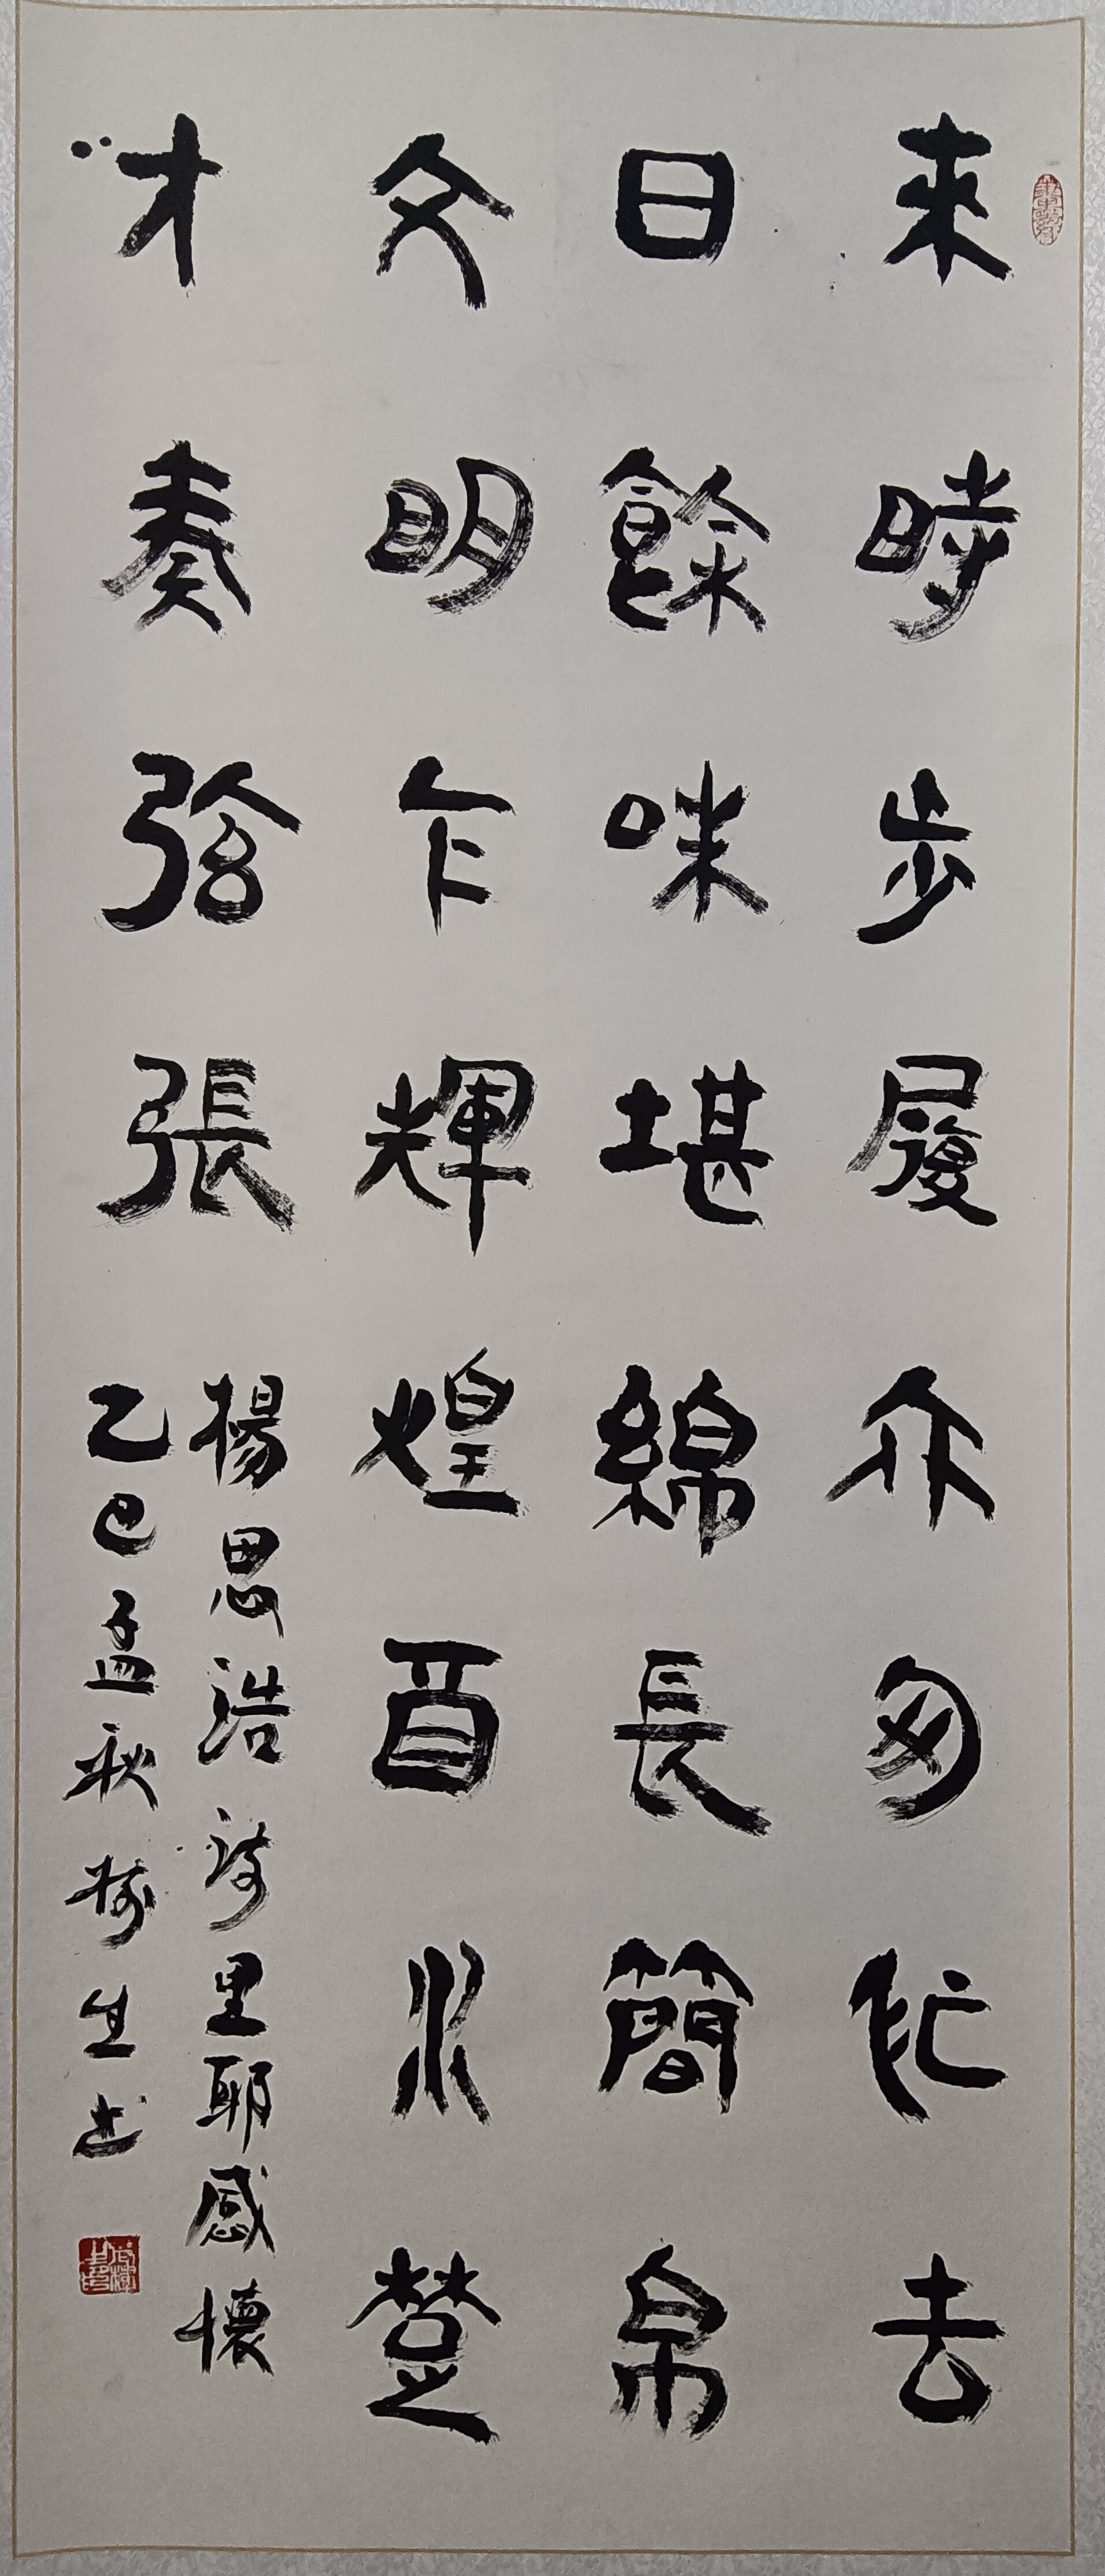 來時步履亦匆忙去
日餘味堪綿長簡帛
文明乍輝煌酉水楚
才奏弦張
楊思浩詩里耶感懷
乙巳孟秋生书